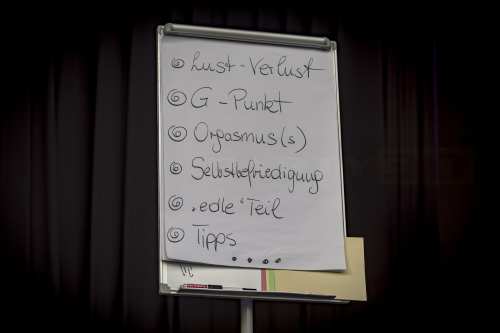 Lust-Verlust
G-Punkt
Orgasmus(s)
Selbstbefriedigung
"edle" Teil
Tipps